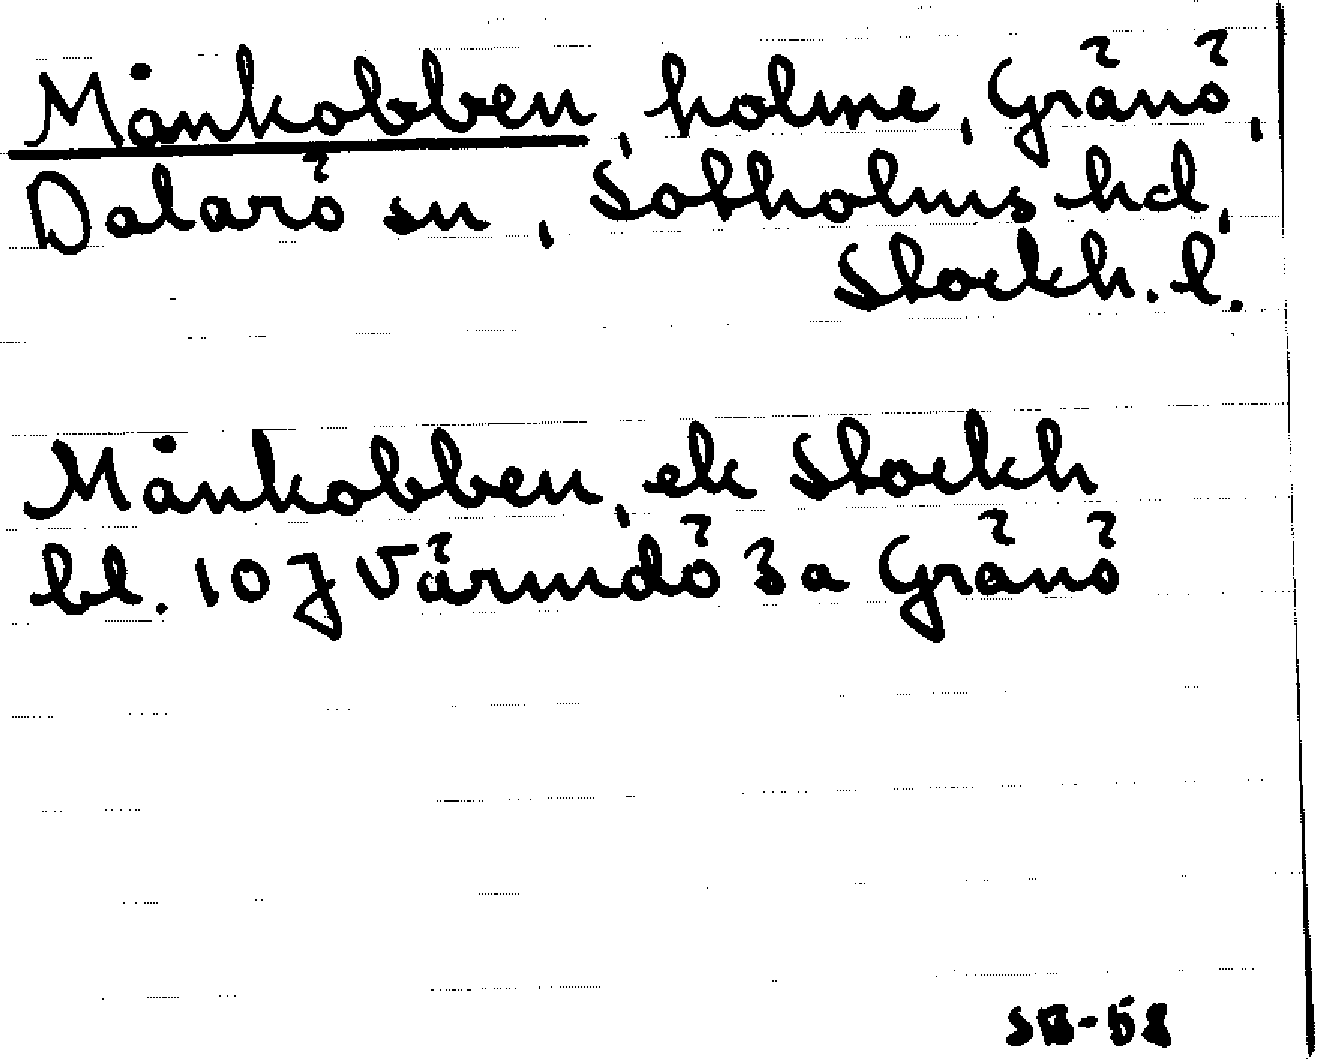 Månkobben, holme, Gränö,
Dalarö sn, Sotholms hd,
Stockh. l.
Månkobben, ek Stockh
bl. 10 J Värmdö 3 a Gränö
SB-58